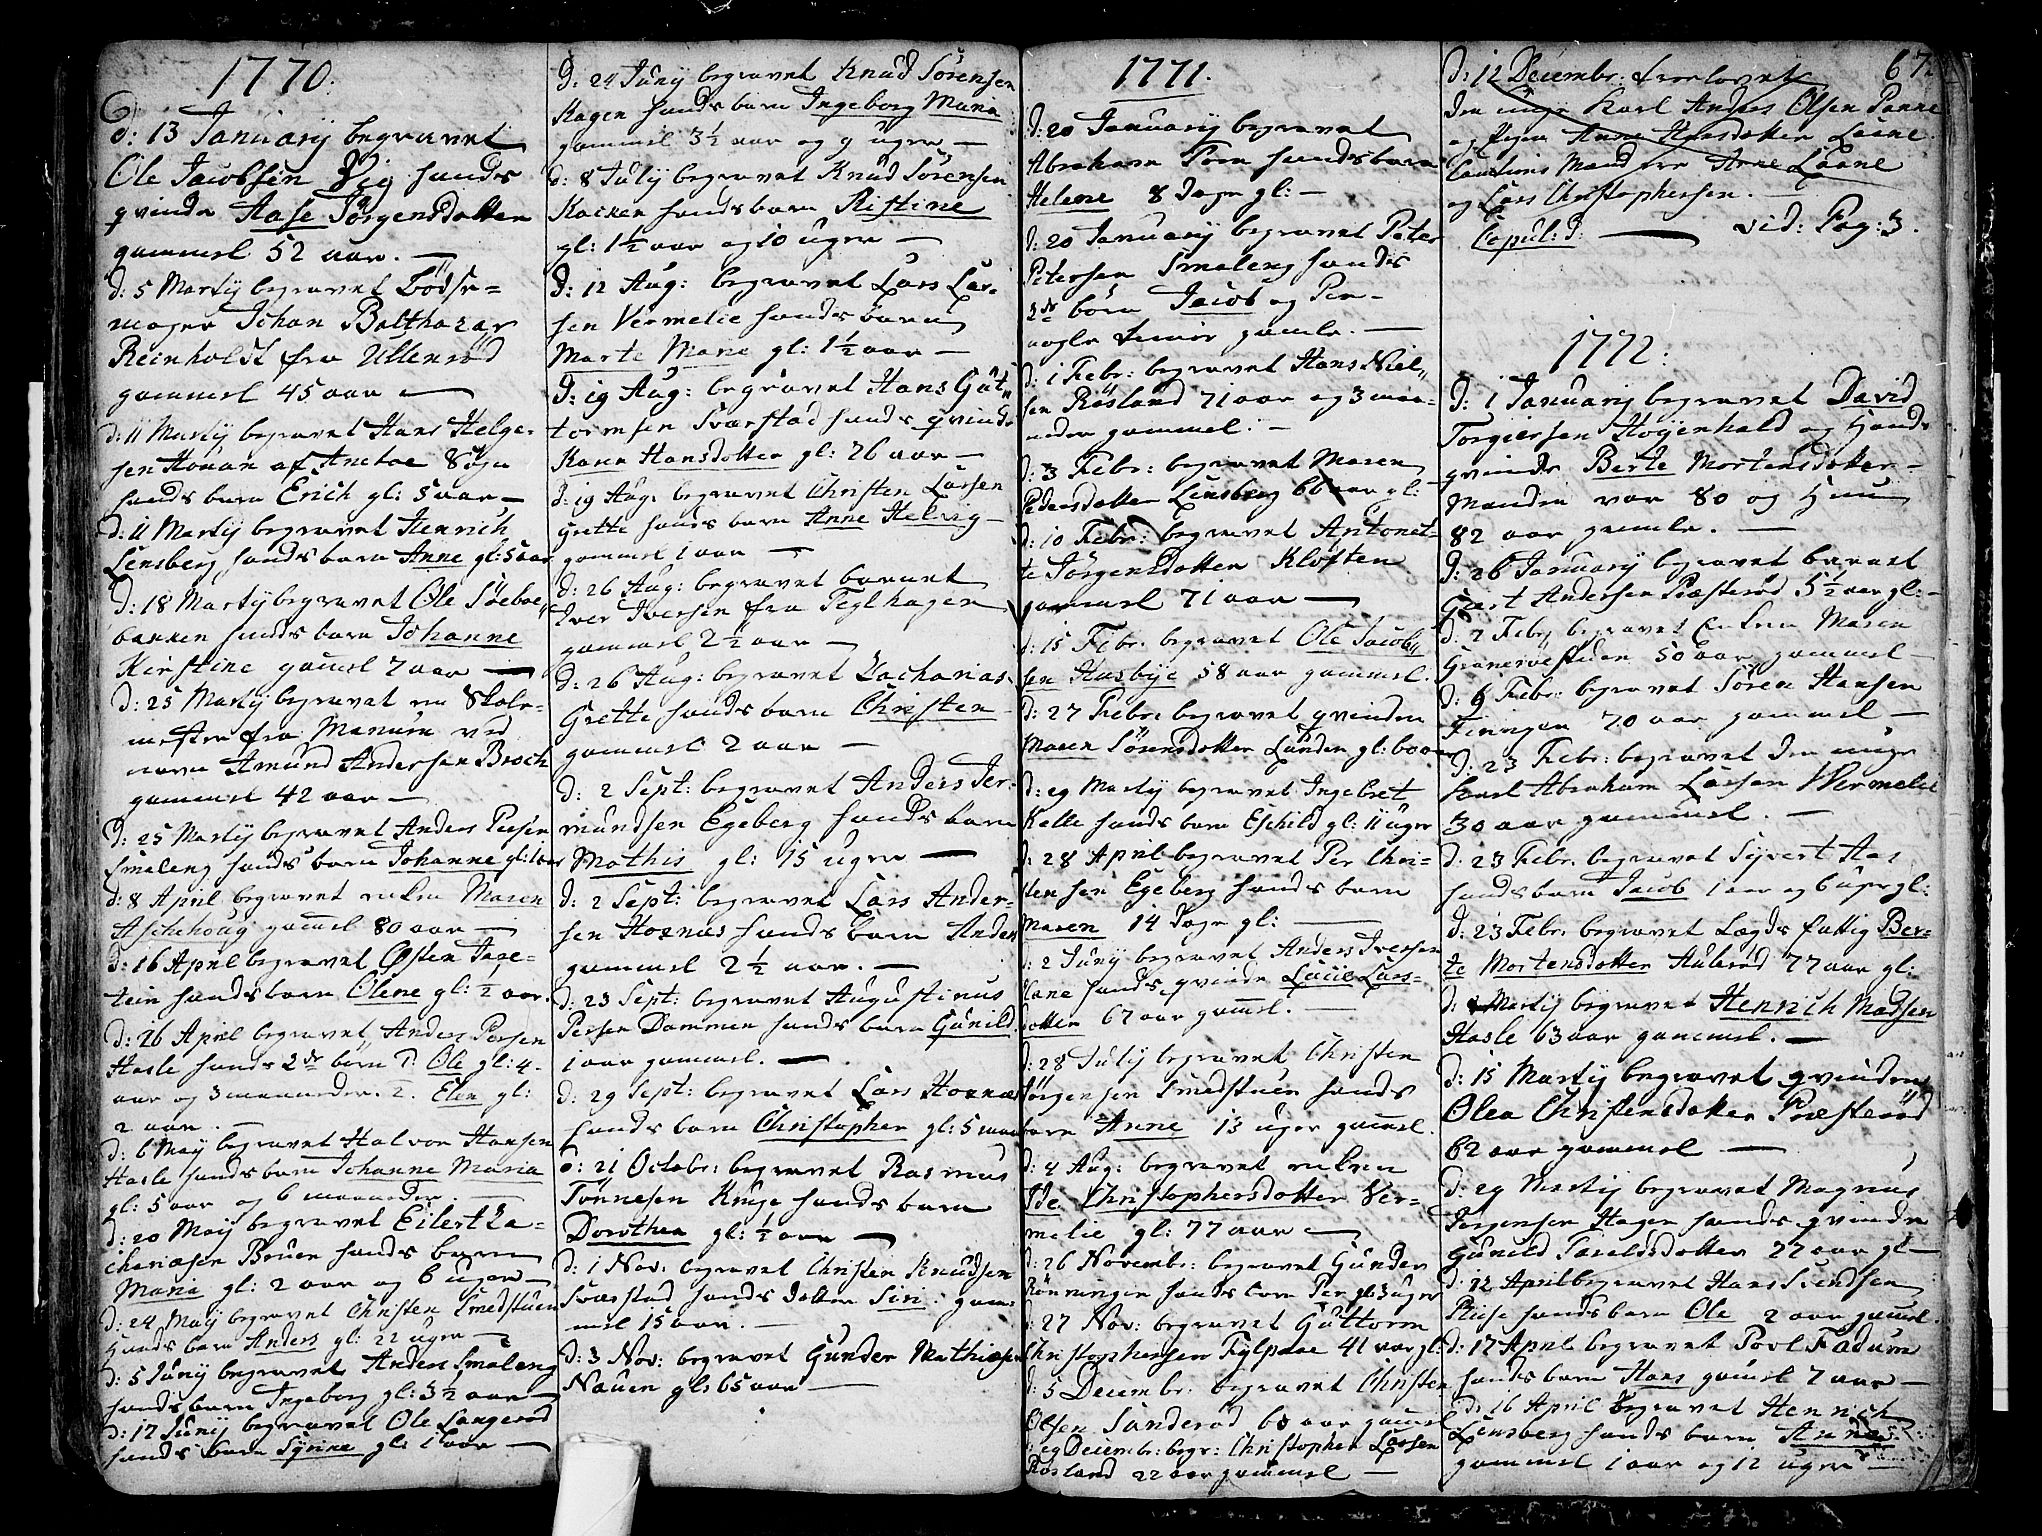 1770.
d: 13 Januarij begravet
Ole Jacobsen Vig hands
qvinde Aase Jörgensdotter
gammel 52 aar. —
d: 5 Martij begravet Bödke=
mager Johan Balthazar
Reinholdt fra Ullerröd
gammel 45 aar —
d: 11 Martij begravet Hans Helge-
sen Houan af Aneboe Sogn
hands barn Erich gl: 5 aar —
d: 11 Martij begravet Henrich
Lensberg hands barn Anne gl: 5 aar
d: 18 Martij begravet Ole Söeboe
bakken hands barn Johanne
Kirstine gamel 7 aar —
d: 25 Martij begravet en Skole-
mester fra Manum ved
navn Amund Andersen Broch
gammel 42 aar —
d: 25 Martij begravet Anders Persen
Smaleng hands barn Johanne gl: 1 aar
d: 8 April begravet enken Maren
Aschehoug gamel 80 aar —
d: 16 April begravet Östen Jare-
tein hands barn Olene gl: ½ aar.
d: 26 April begravet Anders Persen
Hasle hands 2de born 1: Ole gl: 4
aar og 3 maaneder. 2. Elen gl:
2 aar. —
d: 6 Maij begravet Halvor Hansen
Hasle hands barn Johanne Maria
gl: 5 aar og 6 maaneder. —
d: 20 Maij begravet Eilert Za-
chariæsen Bruen hands barn
Maria gl: 2 aar og 6 uger —
d: 24 Maij begravet Christen Smedstuen
hands barn Anders gl: 22 uger —
d: 5 Junij begravet Anders Smaleng
hands barn Ingeborg gl: 3½ aar —
d: 17 Junij begravet Ole Langeröd
hands barn Synne gl: 1 aar —
d: 24 Junij begravet Knud Sörensen
Hagen hands barn Ingeborg Maria
gammel 3½ aar og 9 uger —
d: 8 Julij begravet Knud Sörensen
Backen hands barn Kistine
gl: 1½ aar og 10 uger —
d: 12 Aug: begravet Lars Lar-
sen Vermelie hands barn
Marte Marie gl: 1½ aar —
d: 19 Aug: begravet Hans Gut-
tormsen Sværstad hands qvinde
Karen Hansdotter gl: 26 aar —
d: 19 Aug: begravet Christen Larsen
Grette hands barn Anne Helvig
gammel 1 aar —
d: 26 Aug: begravet barnet
Iver Iversen fra Teglhagen
gammel 2½ aar —
d: 26 Aug: begravet Zacharias
Grette hands barn Christen
gammel 2 aar —
d: 2 Sept: begravet Anders Ter-
mundsen Egeberg hands barn
Mathis gl: 15 uger —
d: 2 Sept: begravet Lars Ander-
sen Hoxnæs hands barn Anders
gammel 2½ aar. —
d: 23 Sept: begravet Augustinus
Persen Dammen hands barn Gunild
1 aar gammel. —
d: 29 Sept: begravet Lars Hoxnæs
hands barn Christopher gl: 5 maan
d: 21 Octobr: begravet Rasmus
Tönnesen Kruse hands barn
Dorothea gl: ½ aar —
d: 1 Nov: begravet Christen Knudsen
Sværstad hands dotter Siri gam-
mel 15 aar. —
d: 3 Nov: begravet Gunder Mathiesen
Nauen gl: 65 aar —
1771.
d: 20 Januarij begravet
Abraham Tom hands barn
Helene 8 Dage gl: —
d: 20 Januarij begravet Peter
Petersen Smaleng hands
2de börn Jacob og Per
nogle timer gamle. —
d: 1 Febr: begravet Hans Niel-
sen Rösland 71 aar og 3 maa-
neder gammel. —
d: 3 Febr: begravet Maren
Pedersdotter Lensberg 66 aar gl:
d: 10 Febr: begravet Antonet-
te Jörgensdotter Klosten
gammel 71 aar —
d: 15 Febr: begravet Ole Jacob-
sen Husbye 58 aar gammel.
d: 27 Febr: begravet qvinden
Maren Sörensdotter Lunden gl: 60 aar
d: 29 Martij begravet Ingebret
Kalle hands barn Eschild gl: 11 uger
d: 28 April begravet Per Chri-
stensen Egeberg hands barn
Maren 14 Dage gl: —
d: 2 Junij begravet Anders Iversen
Hane hands qvinde Lucie Lars-
dotter 67 aar gamel. —
d: 28 Julij begravet Christen
Jörgensen Smedstuen hands
barn Anne 13 uger gamel.
d: 4 Aug: begravet enken
Ide Christophersdotter Ver-
melie gl: 77 aar —
d: 26 Novembr: begravet Gunder
Rönningen hands barn Per gl: 3 uger
d: 27 Nov: begravet Guttorm
Christophersen Fylpaae 41 aar gl:
d: 5 Decembr: begravet Christen
Olsen Sanderöd 60 aar gamel
d: 29 Decembr: begr: Christopher Larsen
Rösland 22 aar gammel —
67.
d: 12 Decembr: trolovet
den unge Karl Anders Olsen Panne
og Pigen Anne Hansdotter Laane
Cautions Mænd ere Arne Laane
og Lars Christophersen.
Copul: d: — vid: Pag: 3.
1772.
d: 1 Januarij begravet David
Torgiersen Höyenhald og hands
qvinde Berte Mortensdotter
Manden var 80 og hun
82 aar gamle. —
d: 26 Januarij begravet barnet
Giert Andersen Præsteröd 5½ aar gl: —
d: 2 Febr: begravet Enken Maren
Graneröestuen 50 aar gammel —
d: 9 Febr: begravet Sören Hansen
Finngan 70 aar gammel —
d: 23 Febr: begravet den unge
Karl Abraham Larsen Wermelie
30 aar gammel. —
d: 23 Febr. begravet Syvert Aas
hands barn Jacob 1 aar og 6 uger gl:
d: 23 Febr. begravet Lægds fattig Ber-
te Mortensdotter Auleröd 77 aar gl:
d: Martij begravet Henrich Madsen
Hasle 63 aar gammel. —
d: 15 Martij begravet qvinden
Olea Christensdotter Præsteröd
62 aar gammel —
d: 29 Martij begravet Magnus
Jörgensen Hagen hands qvinde
Gunild Taraldsdotter 27 aar gl —
d: 12 April begravet Hans Svendsen
Riise hands barn Ole 2 aar gamel.
d: 17 April begravet Povl Fadum
hands barn Hans gamel 7 aar —
d: 16 April begravet Henrich
Lensberg hands barn Anne
gammel 1 aar og 12 uger —